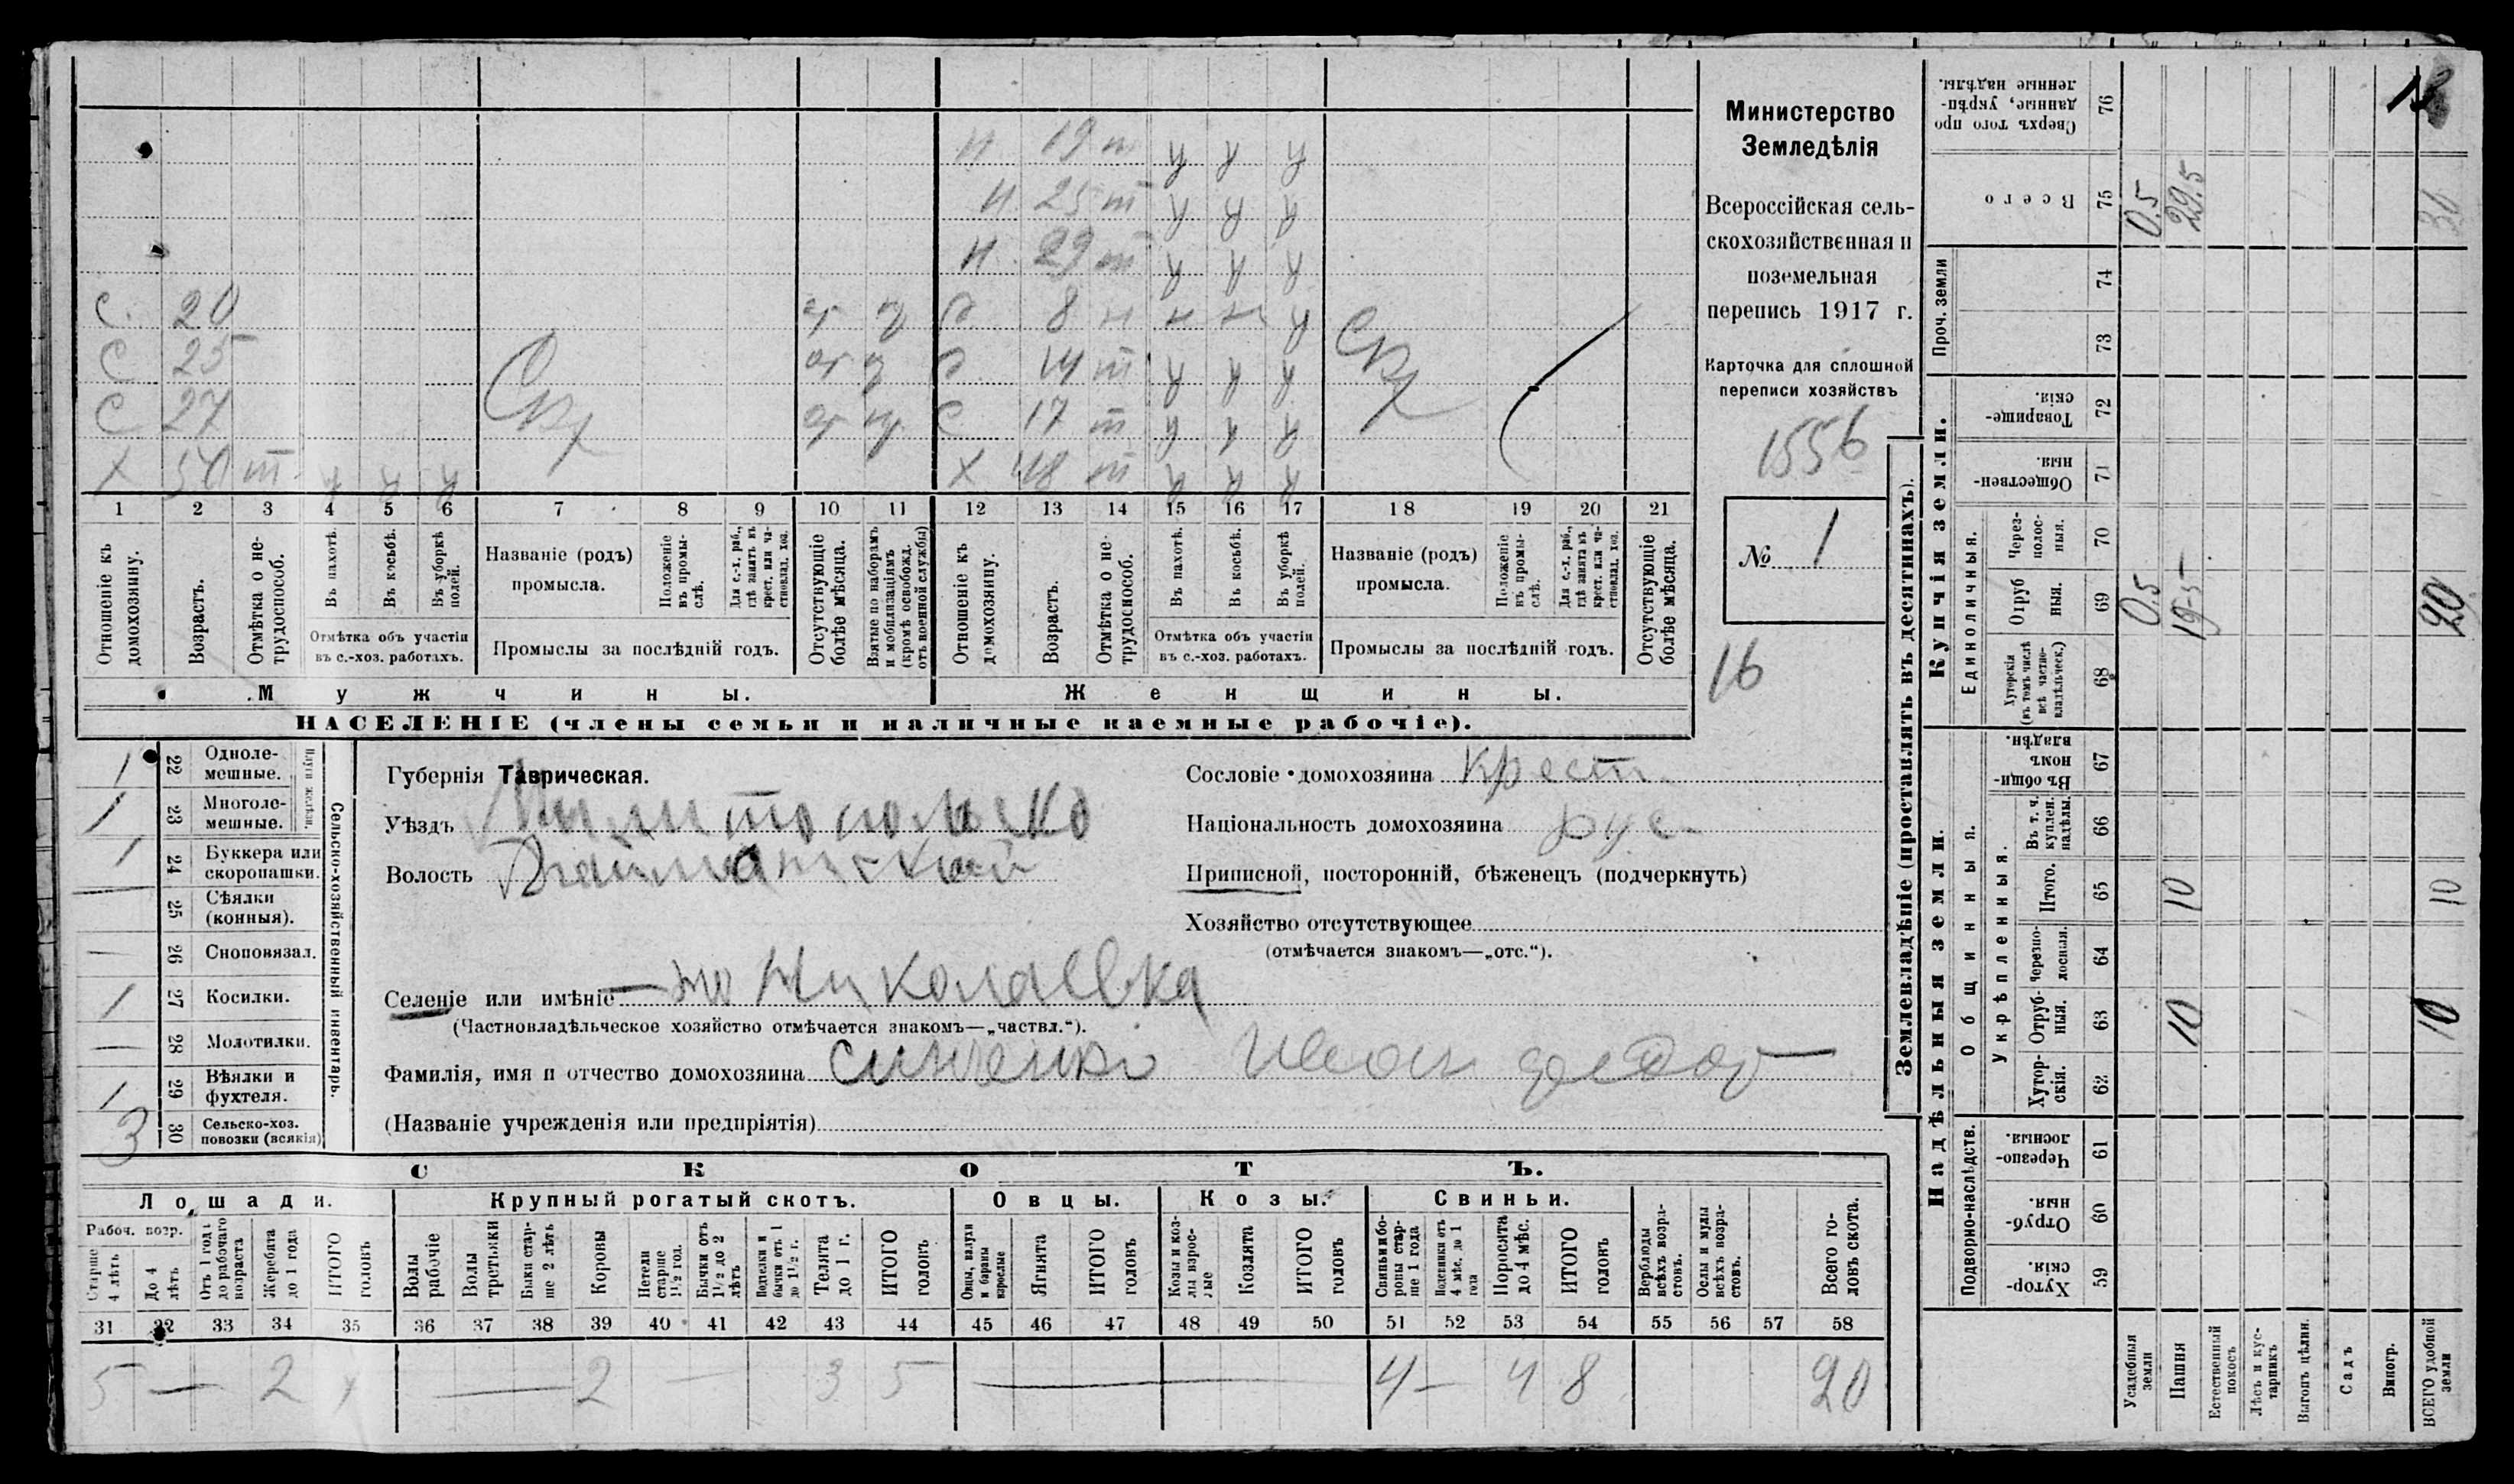 Министерство
Земледѣлія
Всероссійская сель-
скохозяйственная и
поземельная
перепись 1917 г.
Карточка для сплошной
переписи хозяйствъ
1556
№ 1
16
Н 19 т у у у
Н 25 т у у у
Н 29 т у у у
С. 20
8 н н н у
С 25
14 т у у у
С 27
С 17 т у у у
Х 50 т у у у
Х 48 т у у у
Схз
Схз
1 2 3 4 5 6 7 8 9 10 11 12 13 14 15 16 17 18 19 20 21
Отношеніе къ домохозяину.
Возрастъ.
Отмѣтка о не-трудоспособ.
Въ пахотѣ.
Въ косьбѣ.
Въ уборкѣ полей.
Отмѣтка объ участіи
въ с.-хоз. работахъ.
Названіе (родъ)
промысла.
Положеніе въ промы-слѣ.
Для с.-х. раб., гдѣ занятъ въ крест. или ча-стновлад. хоз.
Промыслы за послѣдній годъ.
Отсутствующіе болѣе мѣсяца.
Взятые по наборамъ и мобилизаціямъ (кромѣ освобожд. отъ военной службы)
Отношеніе къ домохозяину.
Возрастъ.
Отмѣтка о не-трудоспособ.
Въ пахотѣ.
Въ косьбѣ.
Въ уборкѣ полей.
Отмѣтка объ участіи
въ с.-хоз. работахъ.
Названіе (родъ)
промысла.
Положеніе въ промы-слѣ.
Для с.-х. раб., гдѣ занята въ крест. или ча-стновлад. хоз.
Промыслы за послѣдній годъ.
Отсутствующіе болѣе мѣсяца.
Мужчины.
Женщины.
НАСЕЛЕНІЕ (члены семьи и наличные наемные рабочіе).
Сельско-хозяйственный инвентарь.
Плуги желѣзн.
1 22 Одноле-мешные.
1 23 Многоле-мешные.
1 24 Буккера или скоропашки.
— 25 Сѣялки (конныя).
— 26 Сноповязал.
1 27 Косилки.
— 28 Молотилки.
1 29 Вѣялки и фухтеля.
3 30 Сельско-хоз. повозки (всякія)
Губернія Таврическая.
Уѣздъ
Волость
Селеніе или имѣніе Николаевка
(Частновладѣльческое хозяйство отмѣчается знакомъ—„частвл.“).
Фамилія, имя и отчество домохозяина Синченко Иван Федор
(Названіе учрежденія или предпріятія)
Сословіе домохозяина крест.
Національность домохозяина рус
Приписной, посторонній, бѣженецъ (подчеркнуть)
Хозяйство отсутствующее
(отмѣчается знакомъ—„отс.“).
СКОТЪ.
Лошади.
Крупный рогатый скотъ.
Овцы.
Козы.
Свиньи.
Рабоч. возр.
Старше 4 лѣтъ
До 4 лѣтъ
Отъ 1 года до рабочаго возраста
Жеребята до 1 года
ИТОГО головъ
Волы рабочіе
Волы третьяки
Быки стар-ше 2 лѣтъ
Коровы
Нетели старше 1½ год.
Бычки отъ 1½ до 2 лѣтъ
Подтелки и бычки отъ 1 до 1½ г.
Телята до 1 г.
ИТОГО головъ
Овцы, валухи и бараны взрослые
Ягнята
ИТОГО головъ
Козы и коз-лы взрос-лые
Козлята
ИТОГО головъ
Свиньи и бо-ровы стар-ше 1 года
Подсвинки отъ 4 мѣс. до 1 года
Поросята до 4 мѣс.
ИТОГО головъ
Верблюды всѣхъ возра-стовъ.
Ослы и мулы всѣхъ возра-стовъ.
Всего го-ловъ скота.
31 32 33 34 35 36 37 38 39 40 41 42 43 44 45 46 47 48 49 50 51 52 53 54 55 56 57 58
5 — 2 — 2 — 3 5 — 4 — 4 8 20
Землевладѣніе (проставлять въ десятинахъ).
Купчія земли.
Надѣльныя земли.
Сверхъ того про данные, укрѣп-ленные надѣлы. 76
Всего 75 0.5 29.5 30
Проч. земли 74
73
Товарище-скія. 72
Обществен-ныя. 71
Единоличныя.
Через-полос-ныя. 70
Отруб ныя. 69 0.5 19-5 20
Хуторскія (въ томъ числѣ всѣ частно-владѣльческ.) 68
Въ общи-номъ владѣн. 67
Общинныя.
Укрѣпленныя.
Въ т. ч. куплен. надѣлы. 66
Итого. 65 10 10
Черезпо-лосная. 64
Отруб-ныя. 63 10 10
Хутор-скія. 62
Подворно-наслѣдств.
Черезпо-лосныя. 61
Отруб-ныя. 60
Хутор-скія. 59
Усадебныя земли
Пашня
Естественный покосъ
Лѣсъ и кус-тарникъ
Выгонъ цѣлин.
Садъ
Виногр.
ВСЕГО удобной земли